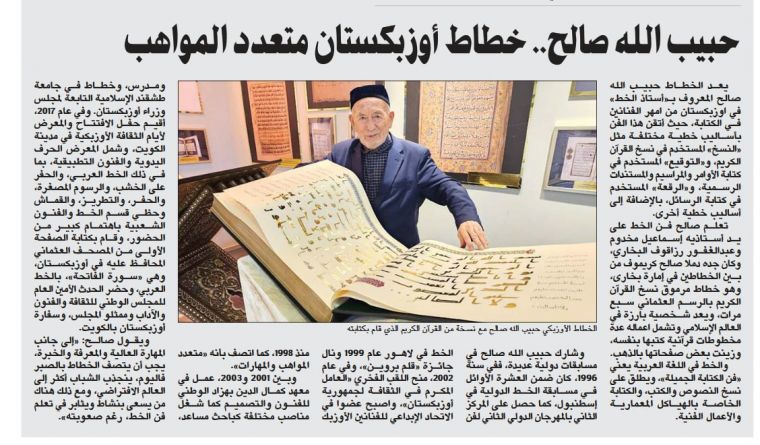 حبيب الله صالح.. خطاط أوزبكستان متعدد المواهب
يعد الخطاط حبيب الله
صالح المعروف بـ«أستاذ الخط»
في اوزبكستان من امهر الفنانين
في الكتابة، حيث أتقن هذا الفن
بأساليب خطية مختلفة مثل
«النسخ» المستخدم في نسخ القرآن
الكريم، و«التوقيع» المستخدم في
كتابة الأوامر والمراسيم والمستندات
الرسمية، و«الرقعة» المستخدم
في كتابة الرسائل، بالإضافة إلى
أساليب خطية أخرى.
تعلم صالح فن الخط على
يد أستاذيه إسماعيل مخدوم
وعبدالغفور رزاقوف البخاري،
وكان جده بدملا صالح كريموف من
بين الخطاطين في إمارة بخارى،
وهو خطاط مرموق نسخ القرآن
الكريم بالرسم العثماني سبع
مرات، ويعد شخصية بارزة في
العالم الإسلامي وتشمل اعماله عدة
مخطوطات قرآنية كتبها بنفسه،
وزينت بعض صفحاتها بالذهب.
والخط في اللغة العربية يعني
«فن الكتابة الجميلة»، ويطلق على
نسخ النصوص والكتب، والكتابة
الخاصة بالهياكل المعمارية
والأعمال الفنية.
الخطاط الأوزبكي حبيب الله صالح مع نسخة من القرآن الكريم الذي قام بكتابته
وشارك حبيب الله صالح في
مسابقات دولية عديدة، ففي سنة
1996، كان ضمن العشرة الأوائل
في مسابقة الخط الدولية في
إسطنبول، كما حصل على المركز
الثاني بالمهرجان الدولي الثاني لفن
الخط في لاهور عام 1999 ونال
جائزة «قلم بروين»، وفي عام
2002، منح اللقب الفخري «العامل
المكرم في الثقافة لجمهورية
أوزبكستان»، واصبح عضوا في
الاتحاد الإبداعي للفنانين الأوزبك
منذ 1998، كما اتصف بانه «متعدد
المواهب والمهارات».
وبين 2001 و2003، عمل في
معهد كمال الدين بهزاد الوطني
للفنون والتصميم كما شغل
مناصب مختلفة كباحث مساعد،
ومدرس، وخطاط في جامعة
طشقند الإسلامية التابعة لمجلس
وزراء أوزبكستان. وفي عام 2017،
أقيم حفل الافتتاح والمعرض
لأيام الثقافة الأوزبكية في مدينة
الكويت. وشمل المعرض الحرف
اليدوية والفنون التطبيقية، بما
في ذلك الخط العربي، والحفر
على الخشب، والرسوم المصغرة،
والحفر، والتطريز، والقماش
وحظي قسم الخط والفنون
الشعبية باهتمام كبير من
الحضور، وقام بكتابة الصفحة
الأولى من المصحف العثماني
المحافظ عليه في أوزبكستان،
وهي «سورة الفاتحة»، بالخط
العربي، وحضر الحدث الأمين العام
للمجلس الوطني للثقافة والفنون
والآداب وممثلو المجلس، وسفارة
أوزبكستان بالكويت.
ويقول صالح: «إلى جانب
المهارة العالية والمعرفة والخبرة،
يجب أن يتصف الخطاط بالصبر
فاليوم، ينجذب الشباب أكثر إلى
العالم الافتراضي، ومع ذلك هناك
من يسعى بنشاط ويثابر في تعلم
فن الخط، رغم صعوبته».